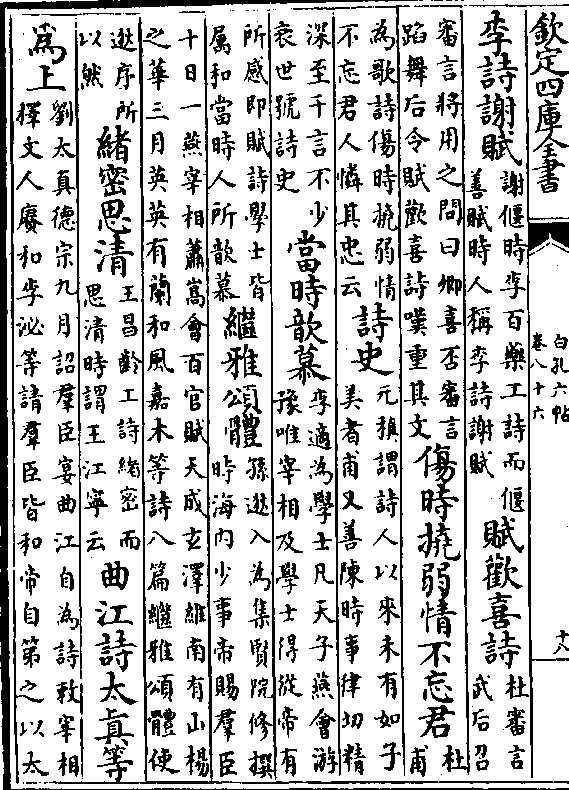 欽定四庫全書
白孔六帖
卷八十六
十八
李詩謝賦
謝偃時李百藥工詩而偃
善賦時人稱李詩謝賦
賦歡喜詩
杜審言
武后召
審言將用之問曰卿喜否審言
蹈舞后令賦歡喜詩嘆重其文
傷時撓弱情不忘君
杜
甫
為歌詩傷時撓弱情
不忘君人憐其忠云
詩史
元稹謂詩人以來未有如子
美者甫又善陳時事律切精
深至千言不少
衰世號詩史
當時歆慕
李適為學士凡天子燕會游
豫唯宰相及學士得從帝有
所感即賦詩學士皆
属和當時人所歆慕
繼雅頌體
孫逖入為集賢院修撰
時海内少事帝賜羣臣
十日一燕宰相蕭嵩會百官賦天成玄澤維南有山楊
之華三月英英有蘭和風嘉木等詩八篇繼雅頌體使
逖序所
以然
緒密思清
王昌齡工詩緒密而
思清時謂王江寧云
曲江詩太真等
為上
劉太真德宗九月詔羣臣宴曲江自為詩敕宰相
擇文人賡和李泌等請羣臣皆和帝自第之以太